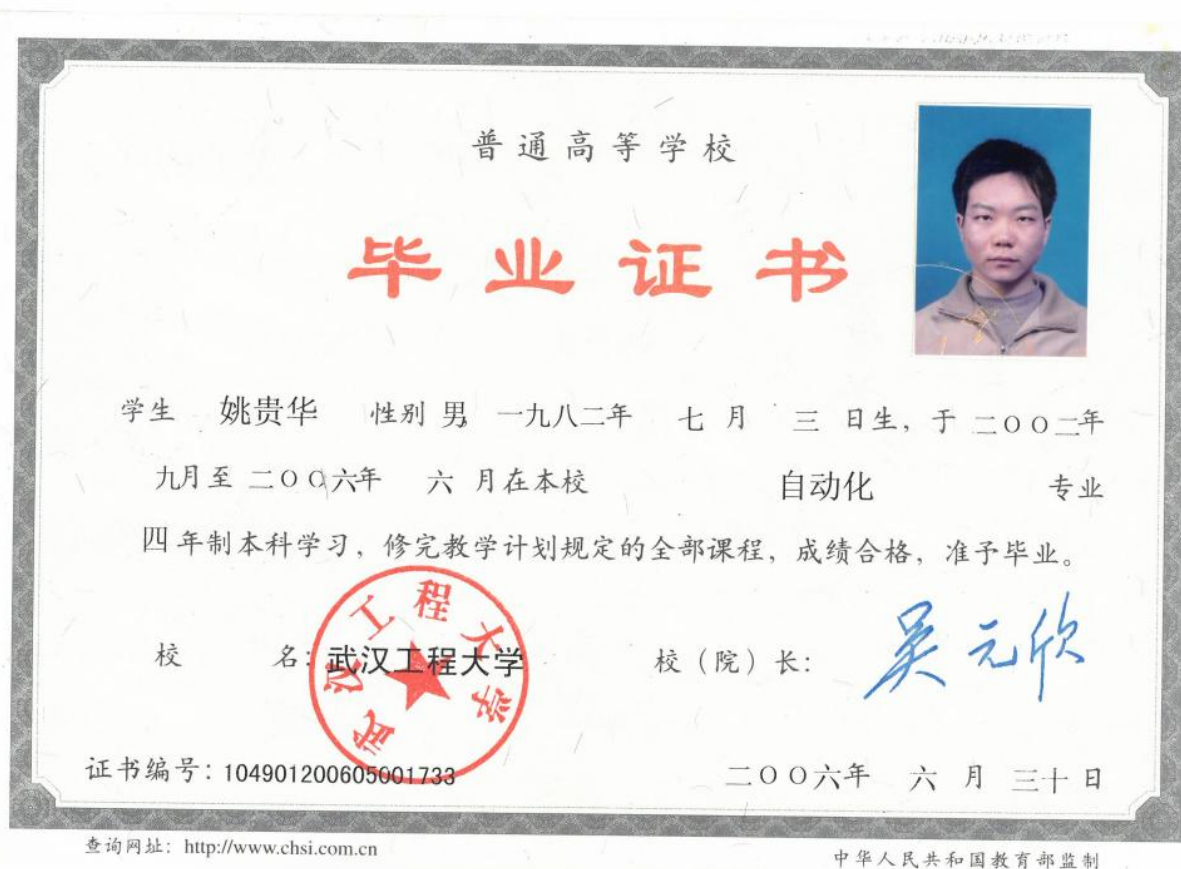 普通高等学校
毕业证书
学生 姚贵华 性别 男 一九八二年 七 月 三 日生，于 二〇〇二年
九月至 二〇〇六年 六 月在本校 自动化 专业
四 年制本科学习，修完教学计划规定的全部课程，成绩合格，准予毕业。
校 名：武汉工程大学 校（院）长：吴元欣
武汉工程大学
证书编号：104901200605001733 二〇〇六年 六 月 三十 日
查询网址：http://www.chsi.com.cn 中华人民共和国教育部监制